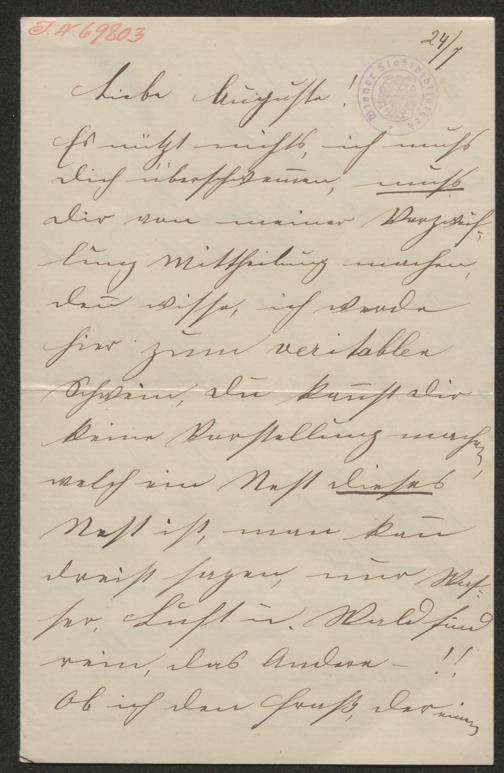 J. N. 69803
24/7
Wiener Stadtbibliothek
Liebe Auguste!
Es nützt nichts, ich muß
Dich überschwem̄en, muß
Dir von meiner Verzweif-
lung Mittheilung machen,
den̄ wisse, ich werde
hier zum veritablen
Schwein, Du kan̄st Dir
keine Vorstellung machen,
welch ein Nest dieses
Nest ist, man kan̄
dreist sagen, nur Was-
ser, Luft u. Wald sind
rein, das Andere – !!
Ob ich den Fraß, der einem